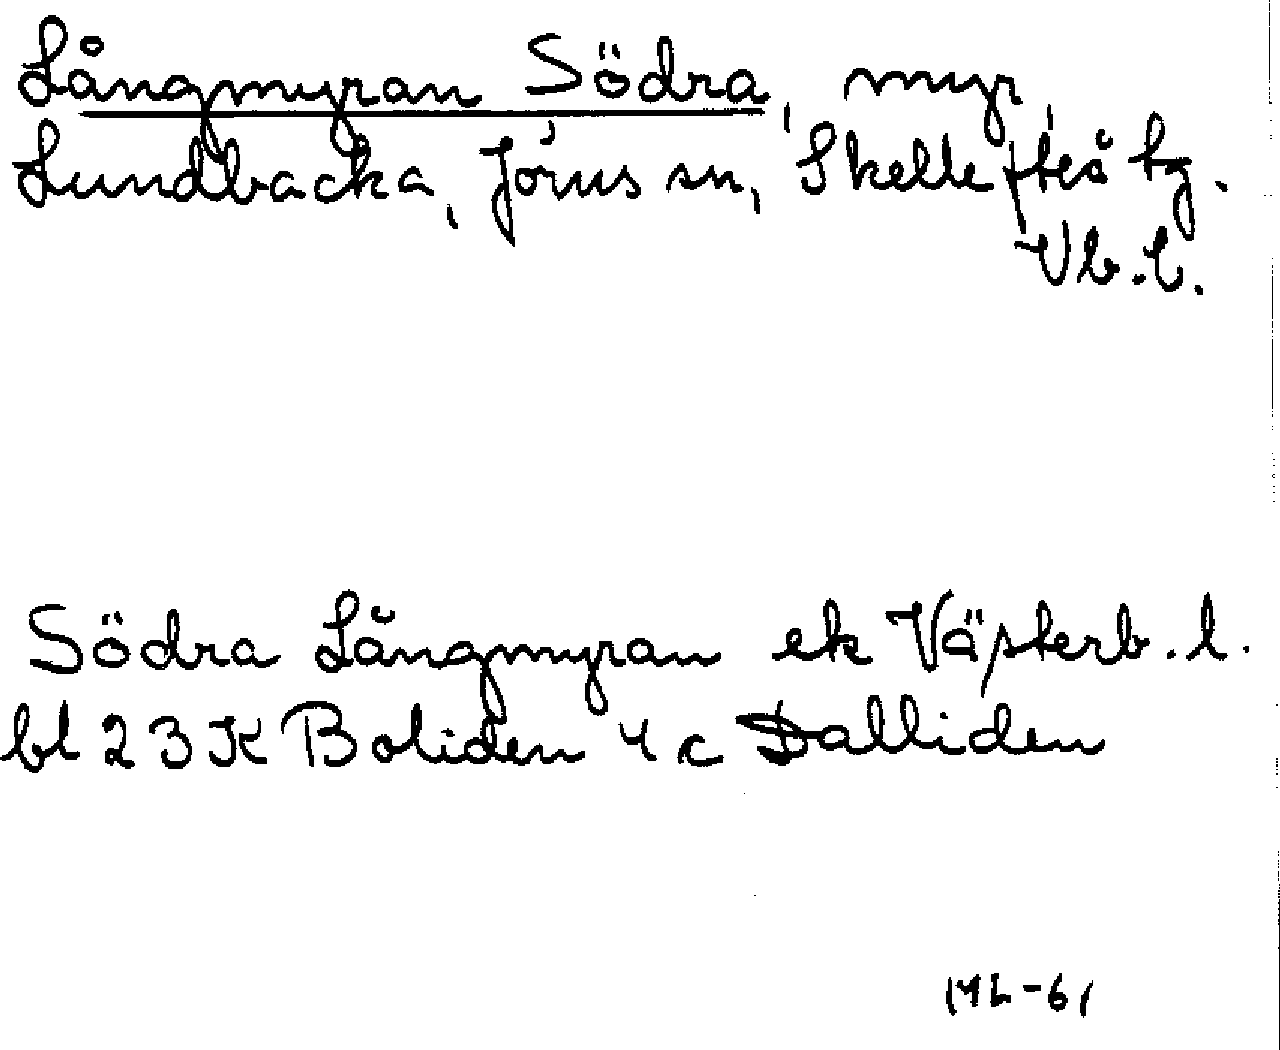 Långmyran Södra, myr,
Lundbacka, Jörns sn, Skellefteå tg.
Vb.l.
Södra Långmyran ek Västerb.l.
bl 23K Boliden 4c Dalliden